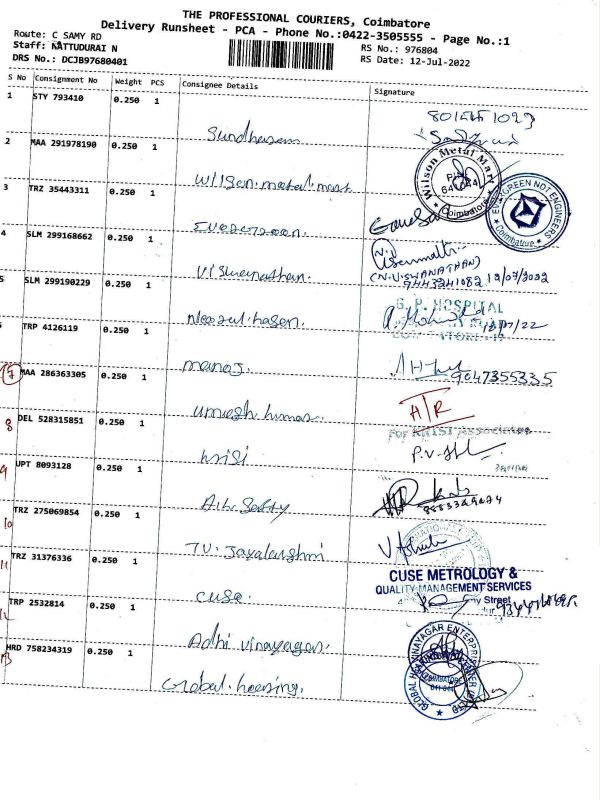 THE PROFESSIONAL COURIERS, Coimbatore
Delivery Runsheet - PCA - Phone No.:0422-3505555 - Page No.:1
Route: C SAMY RD
Staff: NATTUDURAI N
RS No.: 976804
DRS No.: DCJB97680401
RS Date: 12-Jul-2022
S No Consignment No Weight PCS Consignee Details Signature
1 STY 793410 0.250 1
Sundharam
2 MAA 291978190 0.250 1
Wilson metal mart
Wilson Metal Mart
Coimbatore
3 TRZ 35443311 0.250 1
Evergreen
EVERGREEN NDT ENGINEERS
Coimbatore
4 SLM 299168662 0.250 1
Viswanathan
(N.VISWANATHAN)
9443241082 12/07/2022
5 SLM 299190229 0.250 1
G. P. HOSPITAL
12/7/22
TRP 4126119 0.250 1
manoj
9047355335
7 MAA 286363305 0.250 1
Umesh kumar
8 DEL 528315851 0.250 1
krisi
For KRISI Associates
9 UPT 8093128 0.250 1
10 TRZ 275069854 0.250 1
TV. Jayalakshmi
11 TRZ 31376336 0.250 1
cuse
CUSE METROLOGY &
QUALITY MANAGEMENT SERVICES
Street
12 TRP 2532814 0.250 1
Adhi vinayagar
VINAYAGAR ENTERPRI
13 HRD 758234319 0.250 1
Global housing
COIMBATORE